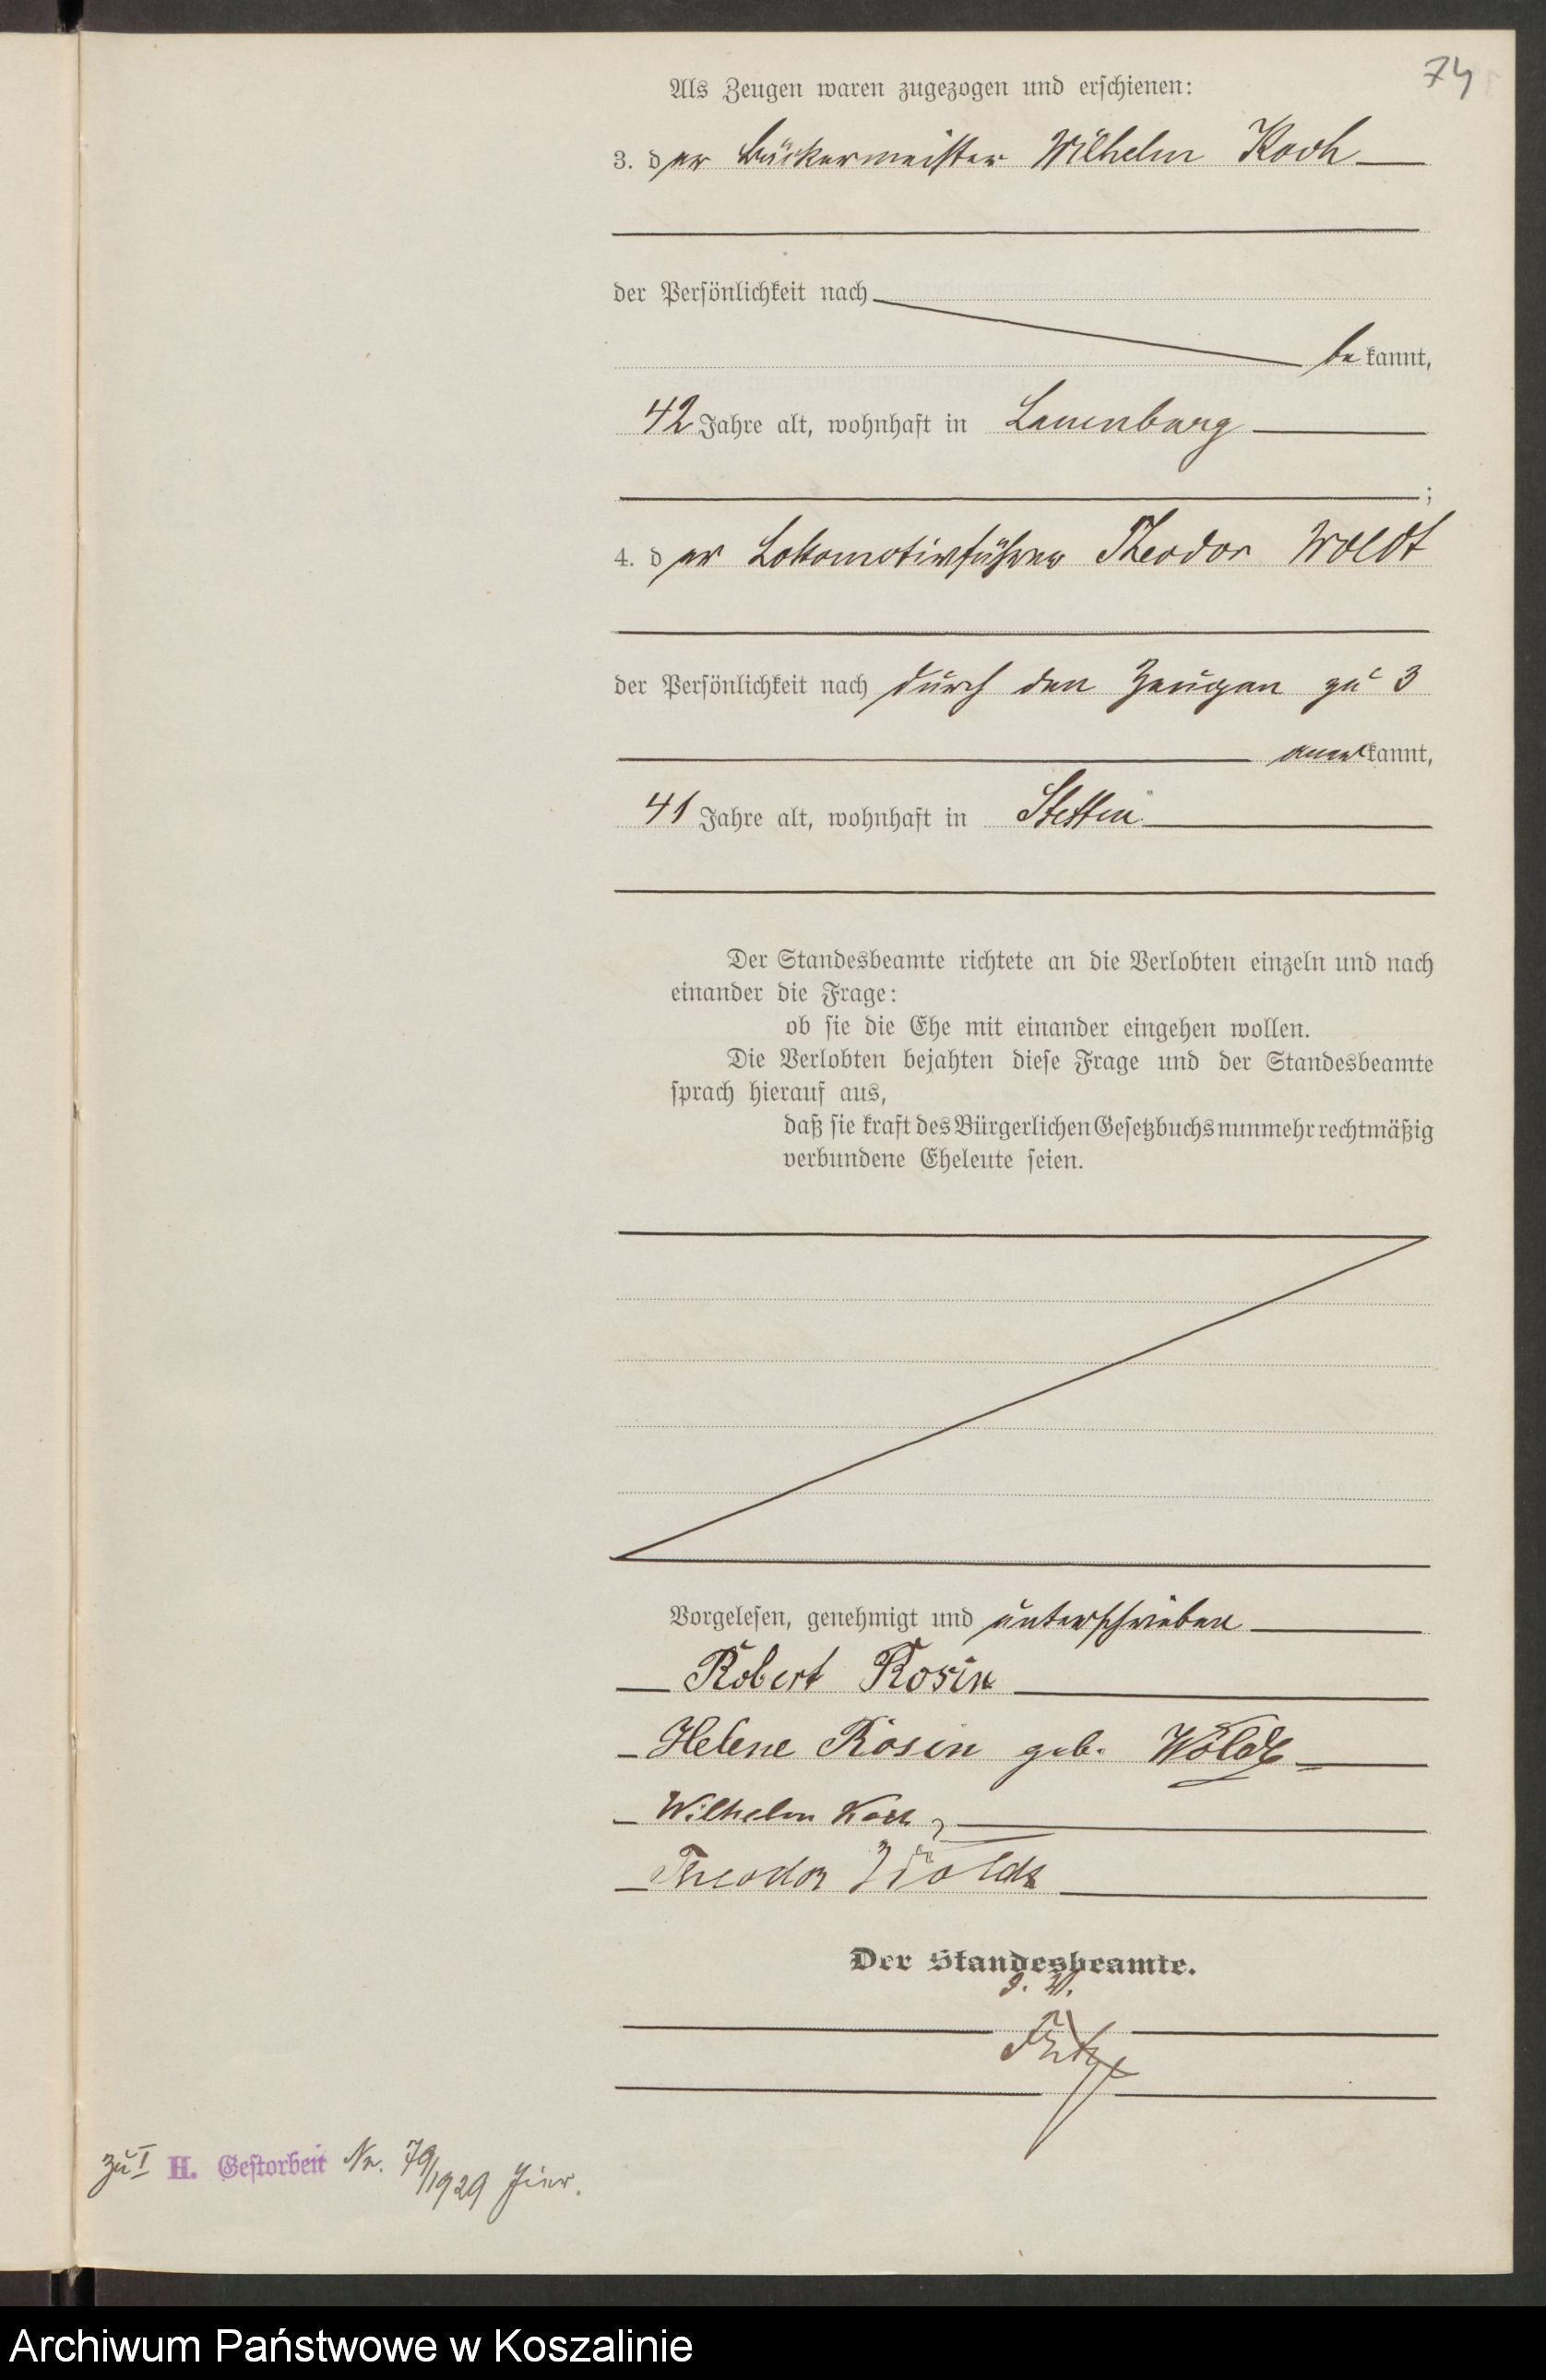 74
Als Zeugen waren zugezogen und erschienen:
3. der Bäckermeister Wilhelm Koch
der Persönlichkeit nach
bekannt,
42 Jahre alt, wohnhaft in Lauenburg
;
4. der Lokomotivführer Theodor Woldt
der Persönlichkeit nach durch den Zeugen zu 3
anerkannt,
41 Jahre alt, wohnhaft in Stettin
Der Standesbeamte richtete an die Verlobten einzeln und nach
einander die Frage:
ob sie die Ehe mit einander eingehen wollen.
Die Verlobten bejahten diese Frage und der Standesbeamte
sprach hierauf aus,
daß sie kraft des Bürgerlichen Gesetzbuchs nunmehr rechtmäßig
verbundene Eheleute seien.
Vorgelesen, genehmigt und unterschrieben
Robert Rosin
Helene Rosin geb. Woldt
Wilhelm Koch
Theodor Woldt
Der Standesbeamte.
zu I H. Gestorben Nr. 79/1929 hier.
Archiwum Państwowe w Koszalinie